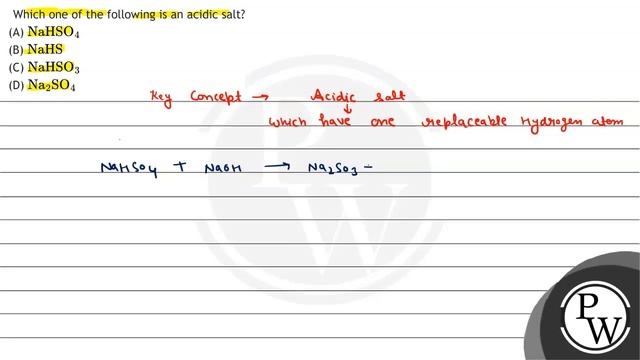 Which one of the following is an acidic salt?
(A) NaHSO₄
(B) NaHS
(C) NaHSO₃
(D) Na₂SO₄
Key Concept → Acidic salt
↓
which have one replaceable Hydrogen atom
NaHSO₄ + NaOH → Na₂SO₃ -
P
W
P
W